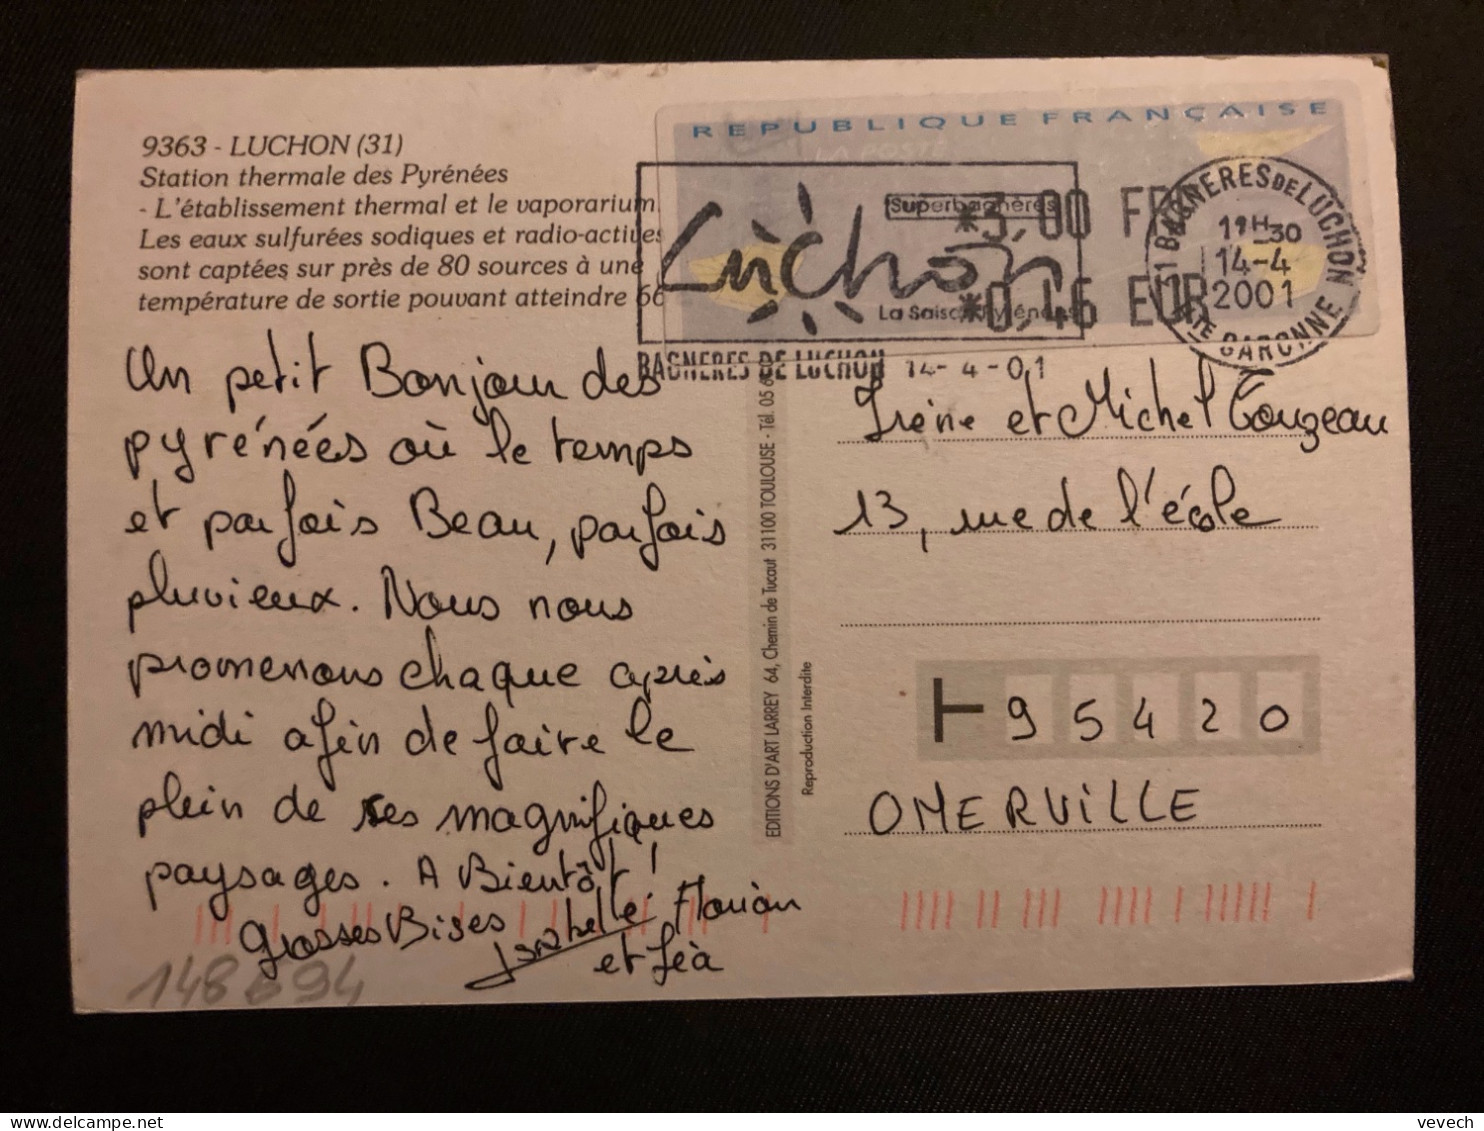 9363 - LUCHON (31)
Station thermale des Pyrénées
- L'établissement thermal et le vaporarium.
Les eaux sulfurées sodiques et radio-actives
sont captées sur près de 80 sources à une
température de sortie pouvant atteindre 66
REPUBLIQUE FRANÇAISE
LA POSTE
*3,00 FR
*0,46 EUR
Superbagnères
Luchon
La Saison Pyrénées
BAGNERES DE LUCHON 14-4-01
31 BAGNERES DE LUCHON
14-4
2001
HTE GARONNE
Un petit Bonjour des
pyrénées où le temps
et parfois Beau, parfois
pluvieux. Nous nous
promenons chaque après
midi afin de faire le
plein de ses magnifiques
paysages. A Bientôt !
Grosses Bises Isabelle Florian
et Léà
148 694
EDITIONS D'ART LARREY 64, Chemin de Tucaut 31100 TOULOUSE - Tél. 05 6
Reproduction Interdite
Irène et Michel Touzeau
13, rue de l'école
95420
OMERVILLE
vevech